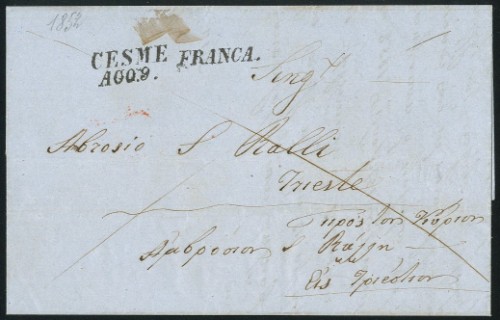 1852
CESME FRANCA.
AGO.9.
Sing.r
Abrosio S Ralli
Trieste
πρὸς τὸν Κύριον
Ἀμβρόσιον S Ράλλη
Εἰς Τριέστιον